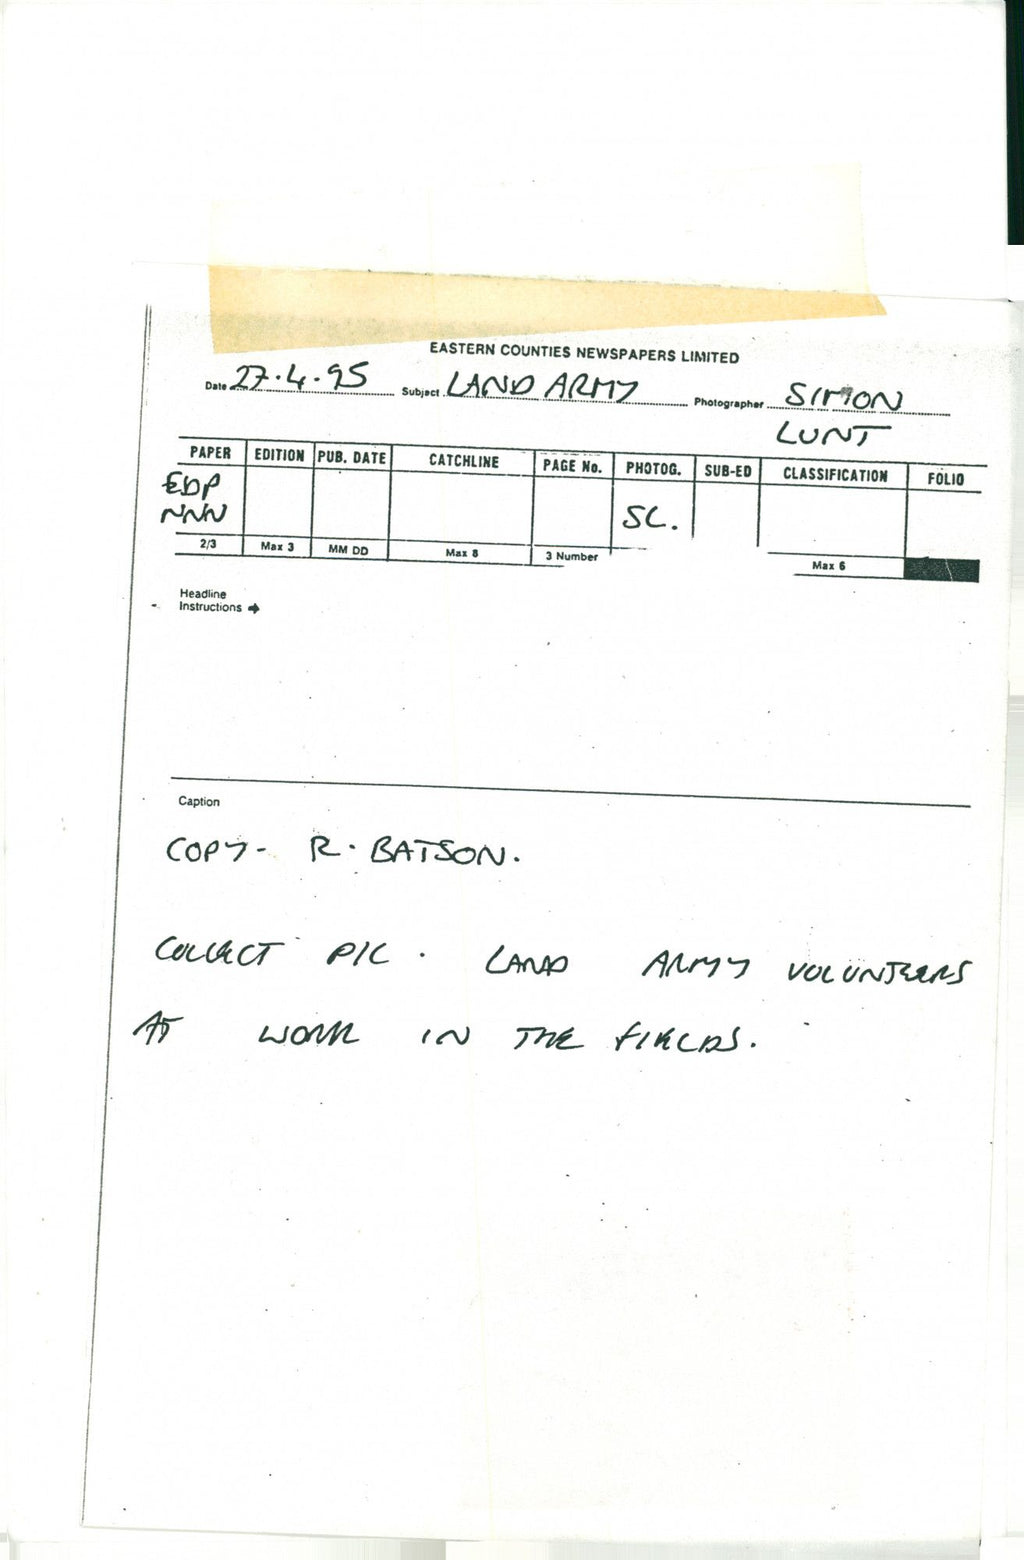 EASTERN COUNTIES NEWSPAPERS LIMITED
Date 27.4.95 Subject LAND ARMY Photographer SIMON
LUNT
PAPER EDITION PUB. DATE CATCHLINE PAGE No. PHOTOG. SUB-ED CLASSIFICATION FOLIO
EDP
NNN SL.
2/3 Max 3 MM DD Max 8 3 Number Max 6
Headline
Instructions →
Caption
COPY- R. BATSON.
COLLECT PIC. LAND ARMY VOLUNTEERS
AT WORK IN THE FIELDS.